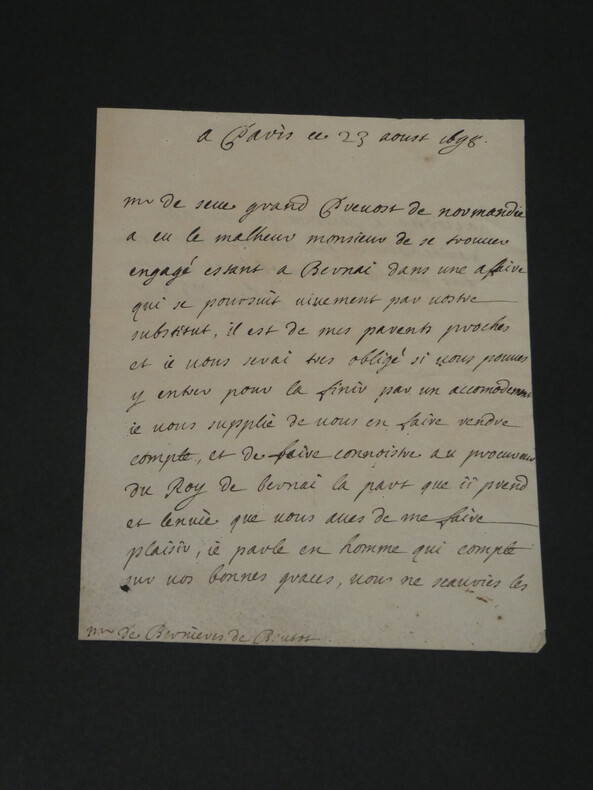 a Paris ce 23 aoust 1698.
mr de seue grand Preuost de normandie
a eu le malheur monsieur de se trouuer
engagé estant a Bernai dans une afaire
qui se poursuit uiuement par uostre
substitut, il est de mes parents proches
et ie uous serai tres obligé si uous pouues
y entrer pour la finir par un accomodemt
ie uous supplie de uous en faire rendre
compte, et de faire connoistre au procureur
du Roy de bernai la part que i'i prend
et lenuie que uous aues de me faire
plaisir, ie parle en homme qui compte
sur uos bonnes graces, uous ne scauries les
mr de Bernieres de